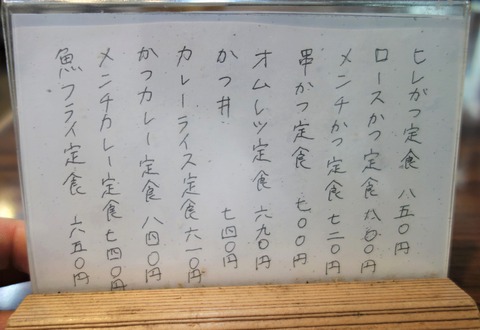 ヒレかつ定食 八五〇円
ロースかつ定食 八〇〇円
メンチかつ定食 七二〇円
串かつ定食 七〇〇円
オムレツ定食 六九〇円
かつ丼 七四〇円
カレーライス定食 六一〇円
かつカレー定食 八四〇円
メンチカレー定食 七四〇円
魚フライ定食 六五〇円